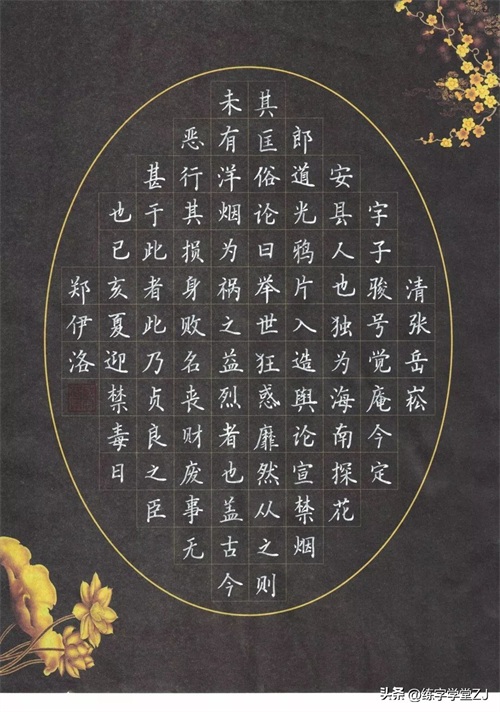 清张岳崧
字子骏号觉庵今定
安县人也独为海南探花
郎道光鸦片入造舆论宣禁烟
其匡俗论曰举世狂惑靡然从之则
未有洋烟为祸之益烈者也盖古今
恶行其损身败名丧财废事无
甚于此者此乃贞良之臣
也已亥夏迎禁毒日
郑伊洛
头条 @练字学堂ZJ